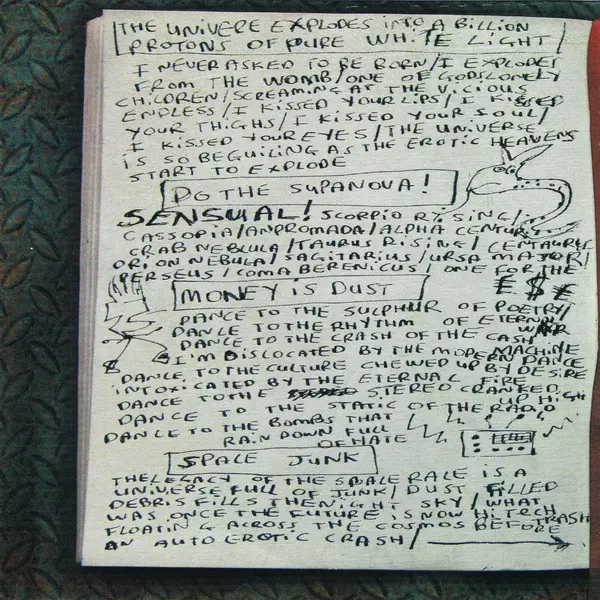 THE UNIVERE EXPLODES INTO A BILLION
PROTONS OF PURE WHITE LIGHT
I NEVER ASKED TO BE BORN/I EXPLODES
FROM THE WOMB/ONE OF GODS LONELY
CHILDREN/SCREAMING AT THE VICIOUS
ENDLESS/I KISSED YOUR LIPS/I KISSED
YOUR THIGHS/I KISSED YOUR SOUL/
I KISSED YOUR EYES/THE UNIVERSE
IS SO BEGUILING AS THE EROTIC HEAVENS
START TO EXPLODE
DO THE SUPANOVA!
SENSUAL! SCORPIO RISING/
CASSOPIA/ANDROMADA/ALPHA CENTURI/
CRAB NEBLULA/TAURUS RISING/CENTAURUS
ORION NEBULA/SAGITARIUS/URSA MAJOR/
PERSEUS/COMA BERENICUS/ONE FOR THE
MONEY IS DUST
£ $ ¥
DANCE TO THE SULPHUR OF POETRY/
DANCE TO THE RHYTHM OF ETERNAL
WAR
DANCE TO THE CRASH OF THE CASH
MACHINE
I'M DISLOCATED BY THE MODERN DANCE
DANCE TO THE CULTURE CHEWED UP BY DESIRE
INTOXICATED BY THE ETERNAL FIRE
DANCE TO THE STEREO CRANKED
UP HIGH
DANCE TO THE STATIC OF THE RADIO
DANCE TO THE BOMBS THAT
RAIN DOWN FULL
OF HATE
SPACE JUNK
THE LEGACY OF THE SPACE RACE IS A
UNIVERSE FULL OF JUNK/DUST FILLED
DEBRIS FILLS THE NIGHT SKY/WHAT
WAS ONCE THE FUTURE IS NOW HI TECH
TRASH
FLOATING ACROSS THE COSMOS BEFORE
AN AUTO EROTIC CRASH/